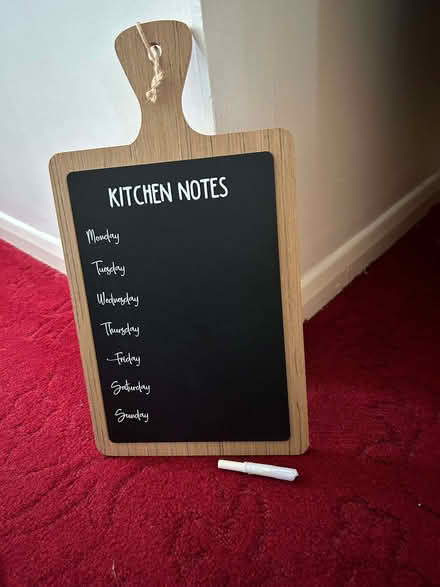 KITCHEN NOTES
Monday
Tuesday
Wednesday
Thursday
Friday
Saturday
Sunday